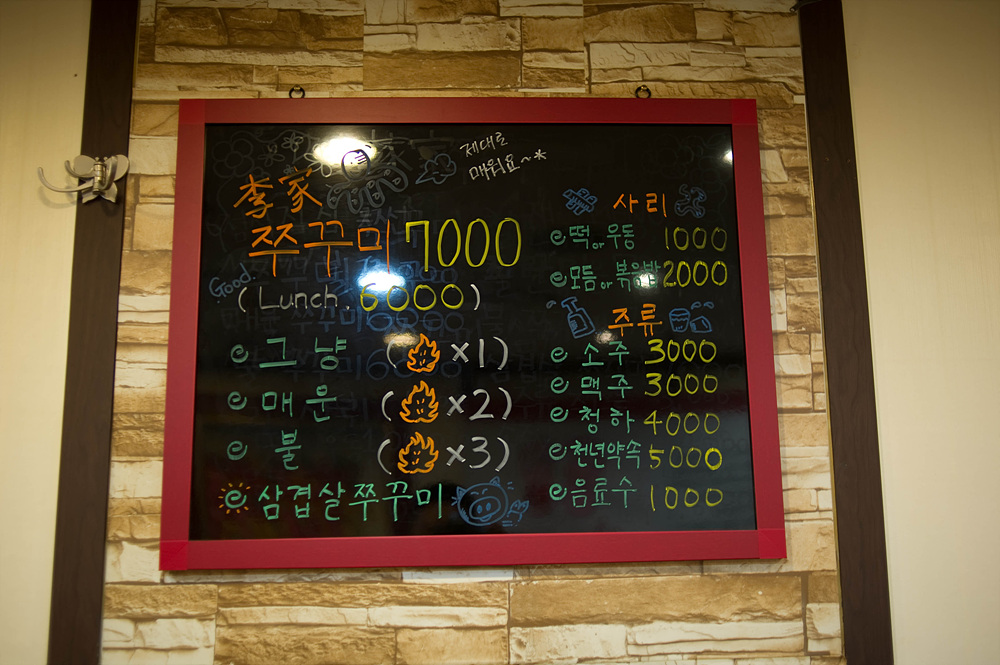 제대로
매워요~*
李家
쭈꾸미 7000
Good.
(Lunch. 6000)
그냥 ( ×1)
매운 ( ×2)
불 ( ×3)
삼겹살쭈꾸미
사리
떡or우동 1000
모듬or볶음밥 2000
주류
소주 3000
맥주 3000
청하 4000
천년약속 5000
음료수 1000